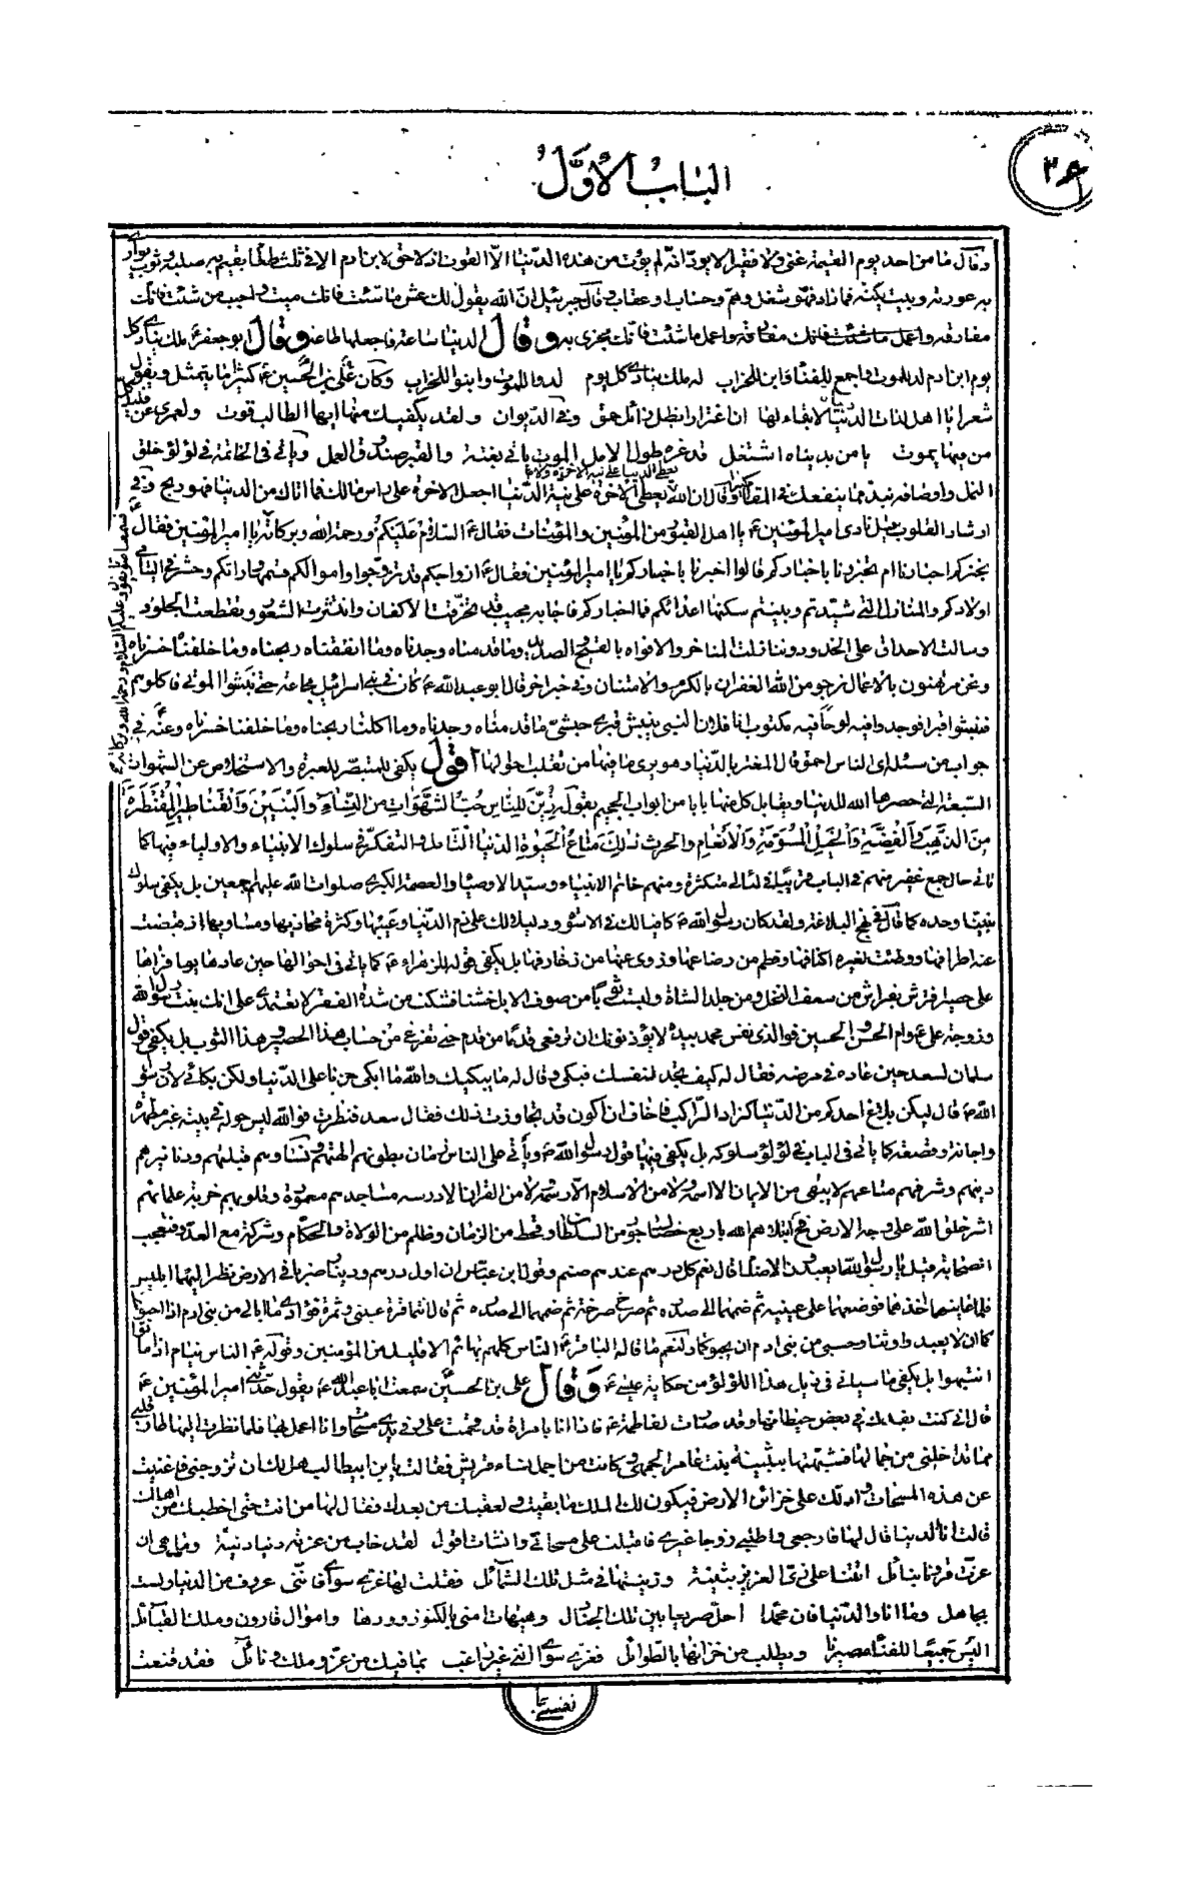 الباب الأوّل
وقال ما من احد يوم القيمة غنى ولا فقير الا يود انه لم يؤت من هذه الدنيا الا القوت اذ لا حق لابن ادم الا فى ثلث طعام يقيم به صلبه وثوب يوارى
به عورته وبيت يكنه فما زاد فهو شغل وهم وحساب او عقاب وقال جبرئيل ان الله يقول لك عش ما شئت فانك ميت واحبب من شئت فانك
مفارقه واعمل ما شئت فانك مجزى به وقال الدنيا ساعة فاجعلها طاعة وقال ابو جعفر ع ملك ينادى كل
يوم ابن ادم لد للموت واجمع للفناء وابن للخراب له ملك ينادى كل يوم لدوا للموت وابنوا للخراب وكان على بن الحسين ع كثيرا ما يتمثل ويقول
شعر يا اهل لذات الدنيا لا بقاء لها ان اغترارا بظل زائل حمق وفى الديوان ولقد يكفيك منها ايها الطالب قوت ولعمرى عن قليل كل
من فيها يموت يا من بدنياه اشتغل قد غره طول الامل الموت ياتى بغتة والقبر صندوق العمل وياتى فى الخاتمة فى لؤلؤ خلق
النمل واوصافه نبذ مما ينفعك فى المقام وقال ان الله يعطى الدنيا على نية الاخرة ولا يعطى الاخرة على نية الدنيا اجعل الاخرة على راس مالك فما اتاك من الدنيا فهو ربح وفى
ارشاد القلوب قيل نادى امير المؤمنين ع يا اهل القبور من المؤمنين والمؤمنات فقال ع السلام عليكم ورحمة الله وبركاته يا امير المؤمنين فقال
نخبركم اخبارنا ام تخبرونا باخباركم قالوا اخبرنا باخباركم يا امير المؤمنين فقال ع ازواجكم قد تزوجوا واموالكم قسمها وراثكم وحشر فى اليتامى
اولادكم والمنازل التى شيدتم وبنيتم سكنها اعدائكم فما اخباركم فاجابه مجيب قد تخرقت الاكفان وانتثرت الشعور وتقطعت الجلود
وسالت الاحداق على الخدود وتنازلت المناخر والافواه بالقيح والصديد وما قدمناه وجدناه وما انفقناه ربحناه وما خلفناه خسرناه
ونحن مرتهنون بالاعمال نرجو من الله الغفران بالكرم والامتنان وفى خبر اخر قال ابو عبد الله ع كان فى بنى اسرائيل مجاعة حتى نبشوا الموتى فاكلوهم
فنبشوا قبرا فوجدوا فيه لوحا فيه مكتوب انا فلان النبى ينبش قبرى حبشى ما قدمناه وجدناه وما اكلنا ربحناه وما خلفنا خسرناه وعنه فى
جواب من سئله اى الناس احمق قال المغتر بالدنيا وهو يرى ما فيها من تقلب حولها اقول يكفى للمتبصر للعبرة والاستخلاص عن الشهوات
السبعة التى حصرها الله للدنيا ويقابل كل منها بابا من ابواب الجحيم بقوله زُيِّنَ لِلنّاسِ حُبُّ الشَّهَواتِ مِنَ النِّساءِ وَالْبَنينَ وَالْقَناطيرِ الْمُقَنْطَرَةِ
مِنَ الذَّهَبِ وَالْفِضَّةِ وَالْخَيْلِ الْمُسَوَّمَةِ وَالْأَنْعامِ والحرث ذلِكَ مَتاعُ الْحَيوةِ الدنيا التامل والتفكر فى سلوك الانبياء والاولياء فيها كما
ياتى حال جمع غفير منهم فى الباب فى لئالى متكثرة ومنهم خاتم الانبياء وسيد الاوصياء والعصمة الكبرى صلوات الله عليهم اجمعين بل يكفى سلوك
نبينا وحده كما قال فى نهج البلاغة ولقد كان رسول الله ص كاف لك فى الاسوة ودليل لك على ذم الدنيا وعيبها وكثرة مخازيها ومساويها اذ قبضت
عنه اطرافها ووطئت لغيره اكنافها وفطم من رضاعها وزوى عنها من زخارفها بل يكفى قوله للزهراء ع كما ياتى فى احوالها حين عادها يوما فراها
على حصير
وزوجة على ع وام الحسن والحسين فوالذى نفس محمد بيده لا يؤذنونك ان ترفعى قدما من قدم حتى تفرغى من حساب هذا الحصير وهذا الثوب بل يكفى قول
سلمان لسعد حين عاده فى مرضه فقال له كيف تجد لنفسك فبكى وقال له ما يبكيك والله ما ابكى حزنا على الدنيا ولكن بكائى لان رسول
الله ص قال ليكن بلاغ احدكم من الدنيا كزاد الراكب فاخاف ان اكون قد تجاوزت ذلك فقال سعد فنظرت فوالله ليس حوله فى بيته غير مطهرة
واجانة وقصعة كما ياتى فى الباب فى لؤلؤ سلوكه بل يكفى فيها قول رسول الله ص وياتى على الناس زمان بطونهم الهتهم ونساؤهم قبلتهم ودنانيرهم
دينهم وشرفهم متاعهم لا يبقى من الايمان الا اسمه ولا من الاسلام الا رسمه ولا من القران الا درسه مساجدهم معمورة وقلوبهم خربة علمائهم
اشر خلق الله على وجه الارض فح ابتلاهم الله باربع خصال جور من السلطان وقحط من الزمان وظلم من الولاة والحكام وشركة مع العدو فتعجب
اصحابه فقيل يا رسول الله ايعبدون الاصنام قال نعم كل درهم عندهم صنم وقول ابن عباس ان اول درهم ودينار ضربا فى الارض نظر اليهما ابليس
فلما عاينهما اخذهما فوضعهما على عينيه ثم ضمهما الى صدره ثم صرخ صرخة ثم ضمهما الى صدره ثم قال انتما قرة عينى وثمرة فؤادى ما ابالى من بنى ادم اذا احبوكما
كما ان لا يعبدوا وثنا وحسبى من بنى ادم ان يحبوكما ولنعم ما قاله الباقر ع الناس كلهم بهائم الا قليل من المؤمنين وقوله ع الناس نيام اذا ماتوا
انتبهوا بل يكفى ما سياتى فى ذيل هذا اللؤلؤ من حكاية عيسى ع وقال على بن الحسين سمعت ابا عبد الله ع يقول حدثنى امير المؤمنين ع
قال انى كنت بفدك فى بعض حيطانها وقد صارت لفاطمة ع فاذا انا بامراة قد قحمت على وفى يدى مسحاة وانا اعمل بها فلما نظرت اليها طار قلبى
مما تداخلنى من جمالها فشبهتها ببثينة بنت عامر الجمحى وكانت من اجمل نساء قريش فقالت يا بن ابيطالب هل لك ان تزوجنى فاغنيك
عن هذه المسحاة وادلك على خزائن الارض فيكون لك الملك ما بقيت ولعقبك من بعدك فقال لها من انت حتى اخطبك من اهلك
قالت انا الدنيا قال لها فارجعى واطلبى زوجا غيرى فاقبلت على مسحاتى وانشات اقول لقد خاب من غرته دنيا دنية وما هى ان
غرت قرونا بنائل اتتنا على زى العزيز بثينة وزينتها فى مثل تلك الشمائل فقلت لها غرى سواى فاننى عزوف من الدنيا ولست
بجاهل وما انا والدنيا فان محمدا احل صريعا بين تلك الجنادل وهيهات امنى بالكنوز وردها واموال قارون وملك القبائل
اليس جميعا للفناء مصيرنا ويطلب من خزانها بالطوائل فغرى سواى اننى غير راغب بما فيك من عز وملك ونائل فقد قنعت
نفسى بما